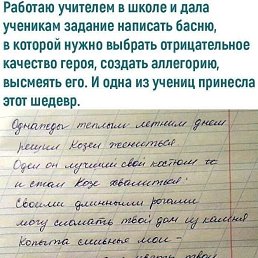 Работаю учителем в школе и дала
ученикам задание написать басню,
в которой нужно выбрать отрицательное
качество героя, создать аллегорию,
высмеять его. И одна из учениц принесла
этот шедевр.
Однажды теплым летним днем
решил Козел жениться
Одел он лучший свой костюм
и стал Козе хвалиться.
Своими длинными рогами
могу сломать твой дом из камня
Копыта сильные мои –
твой